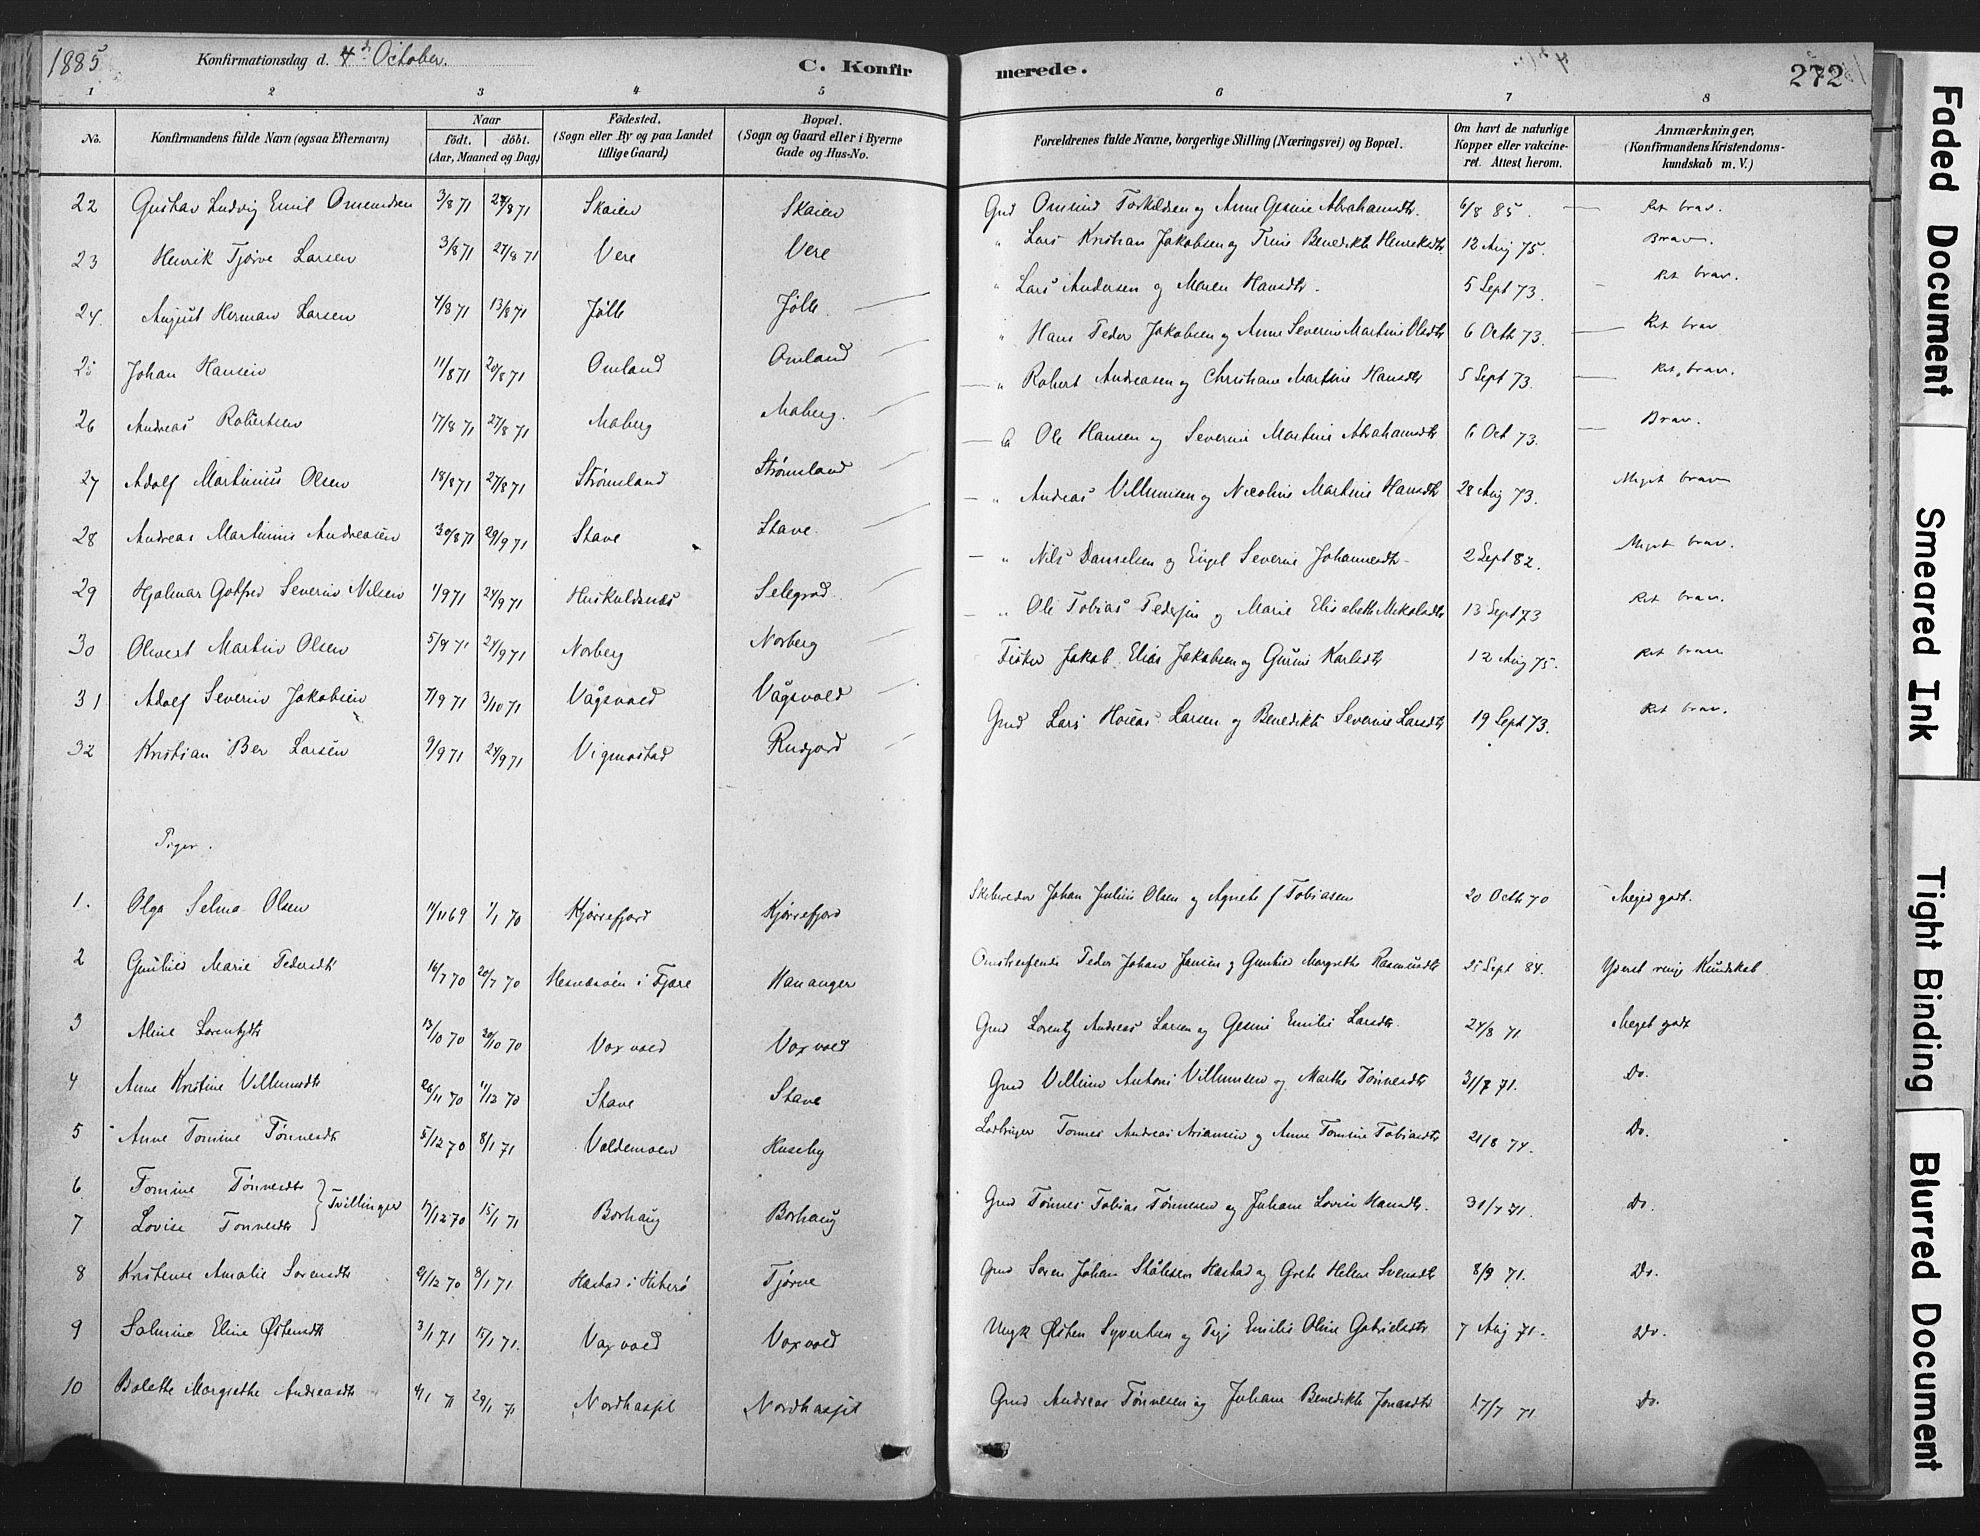 1885 Konfirmationsdag d. 4de October. C. Konfirmerede. 272
1 2 3 4 5 6 7 8
No. Konfirmandens fulde Navn (ogsaa Efternavn) Naar födt. döbt. (Aar, Maaned og Dag) Födested. (Sogn eller By og paa Landet tillige Gaard) Bopæl. (Sogn og Gaard eller i Byerne Gade og Hus-No. Forældrenes fulde Navne, borgerlige Stilling (Næringsvei) og Bopæl. Om havt de naturlige Kopper eller vakcineret. Attest herom. Anmærkninger, (Konfirmandens Kristendomskundskab m. V.)
22 Gustav Ludvig Emil Omundsen 3/8 71 27/8 71 Skaien Skaien Gmd Omund Torkildsen og Anne Gesine Abrahamsdtr. 6/8 85. Ret brav.
23 Henrik Tjørve Larsen 3/8 71 27/8 71 Vere Vere " Lars Kristian Jakobsen og Trine Benedikte Henriksdtr 12 Aug 75. Brav.
24. August Herman Larsen 4/8 71 13/8 71 Jølle Jølle " Lars Andersen og Maren Hansdtr. 5 Sept 73. Ret brav.
25 Johan Hansen 11/8 71 20/8 71 Omland Omland " Hans Peder Jakobsen og Anne Severine Martine Olsdtr 6 Octb 73. Ret brav
26 Andreas Robertsen 17/8 71 27/8 71 Maberg Maberg. " Robert Andreasen og Christiane Martine Hansdtr 5 Sept 73. Ret brav.
27 Adolf Martinius Olsen 18/8 71 27/8 71 Strømland Strømland Ole Hansen og Severine Martine Abrahamsdtr 6 Oct 73. Brav.
28 Andreas Martinius Andreasen 30/8 71 29/9 71 Stave Stave. " Andreas Villumsen og Nicoline Martine Hansdtr 28 Aug 73. Meget brav
29 Hjalmar Gotfred Severin Nilsen 1/9 71 24/9 71 Huskuldsnæs " Nils Danielsen og Engel Severine Johannesdtr 2 Sept 82. Meget brav.
30 Martin Olsen 5/9 71 24/9 71 Norberg Norberg " Ole Tobias Pedersen og Marie Elisabeth 13 Sept 73 Ret brav.
31 Adolf Severin Jakobsen 7/9 71 3/10 71 Vågsvold Vågsvold Fisker Jakob Elias Jakobsen og Gurine Karlsdtr 12 Aug 75. Ret brav
32 Kristian Ber Larsen 9/9 71 24/9 71 Vigmostad Rudjord Gmd Lars Larsen og Benedikte Severine Larsdtr 19 Sept 73. Ret brav.
Piger.
1. Olga Selma Olsen 11/11 69 1/1 70 Kjørrefjord Kjørrefjord Skibsreder Johan Julius Olsen og Agnete f Tobiasen 20 Octb 70 Meget godt.
2 Gunhild Marie Pedersdtr 16/7 70 20/7 70 Hesnæsøen i Fjære Hananger Omstreifende Peder Johan Jensen og Gunhild Margrethe Rasmusdtr 25 Sept 84. Yderst ringe Kundskab
3 Aline Lorentzdtr 13/10 70 30/10 70 Voxvold Voxvold Gmd Lorentz Andreas Larsen og Gesine Emilie Larsdtr. 24/8 71. Meget godt
4 Anne Kristine Villumsdtr 26/11 70 11/12 70 Stave Stave Gmd Villum Antoni Villumsen og Marthe Tønnesdtr 31/7 71. Do.
5 Anne Tomine Tønnesdtr 5/12 70 8/1 71 Voldemoen Huseby Tønnes Andreas Ariansen og Anne Tomine Tobiasdtr 21/8 74. Do.
6 Tomine Tønnesdtr } Tvillinger 17/12 70 15/1 71 Borhaug Borhaug Gmd Tønnes Tobias Tønnesen og Juhane Lovise Hansdtr. 31/7 71. Do.
7 Lovise Tønnesdtr
8 Kristense Amalie Sorensdtr 9/12 70 8/1 71 Hastad i Hiterø Tjørve Gmd Soren Johan Ståleson Hastad og Grete Helene Svensdtr 8/9 71. Do.
9 Salmine Eline Østensdtr 3/1 71 15/1 71. Voxvold Voxvold Ungk Østen Syvertsen og Pige Emilie Oline Gabrielsdtr 7 Aug 71. Do.
10 Bolette Margrethe Andreasdtr 4/1 71 29/1 71 Nordhassel Nordhassel Gmd Andreas Tønnesen og Juhane Benedikte Jonasdtr 17/7 71 Do.
Faded Document
Smeared Ink
Tight Binding
Blurred Document